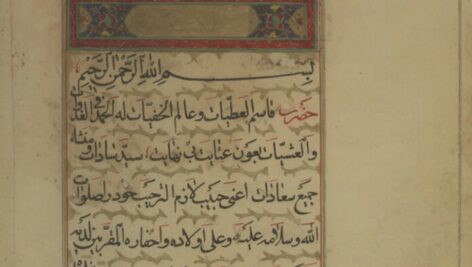 بسم الله الرحمن الرحيم
حضرت قاسم العطيات وعالم الخفيات له الحمد في الغدوات
والعشيات بعون عنايت بى نهايت سيد سادات ومنشاء
جميع سعادات اعنى حبيب لازم الترحيب خود در صلوات
الله وسلامه عليه وعلى اولاده واحفاده المقربين لديه